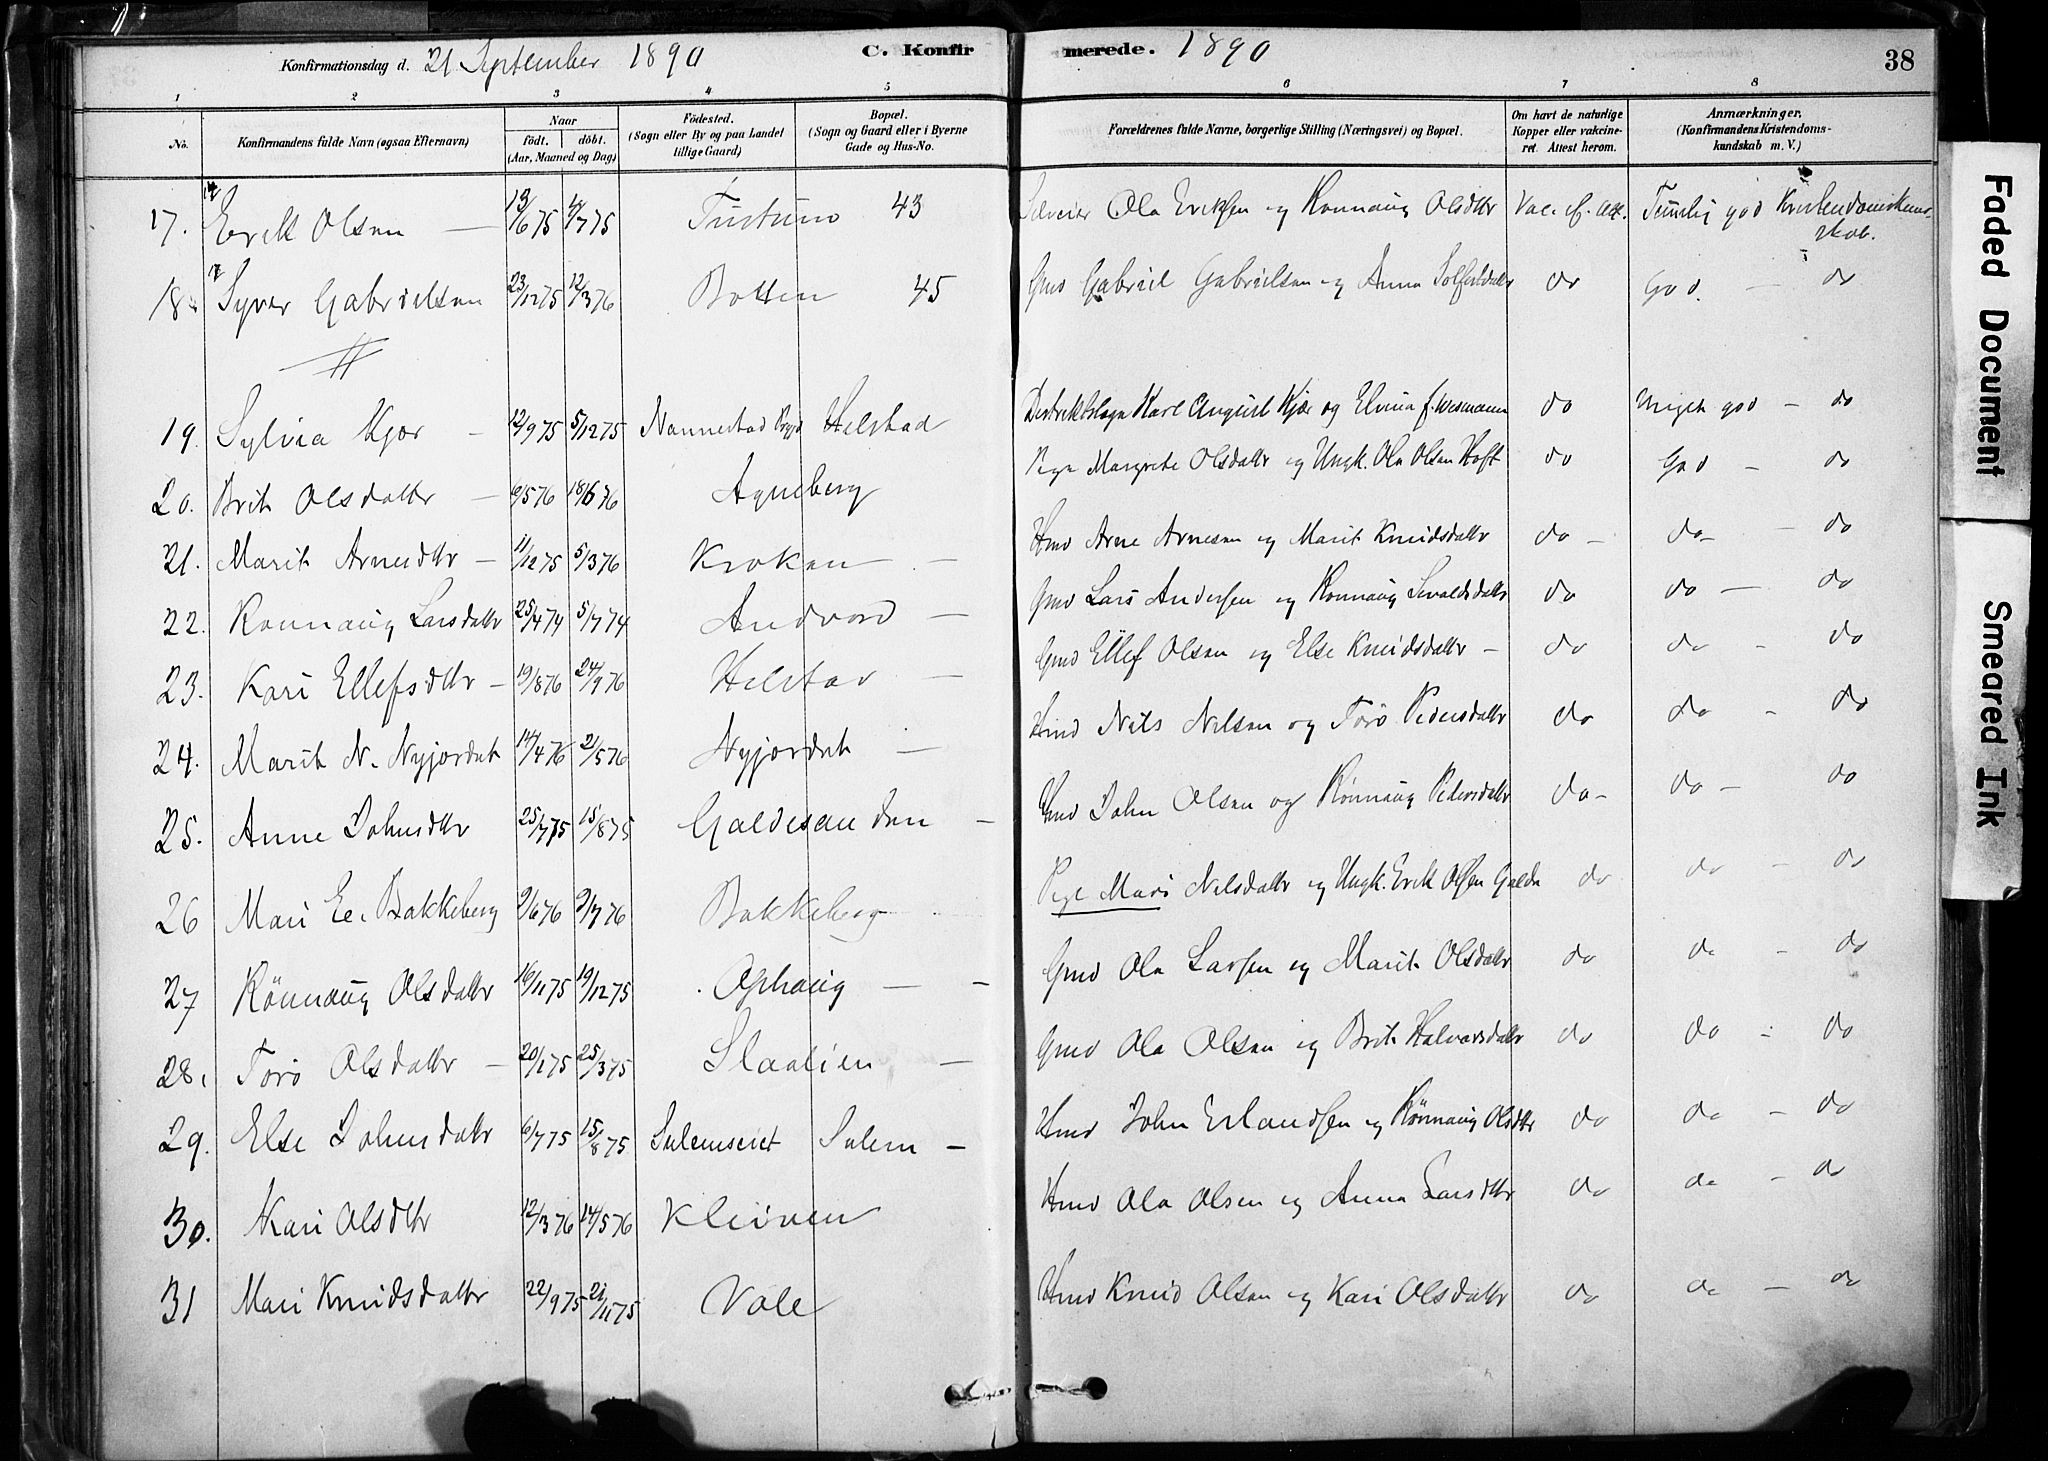 Konfirmationsdag d. 21 September 1890 C. Konfirmerede. 1890 38
1 2 3 4 5 6 7 8
No. Konfirmandens fulde Navn (ogsaa Efternavn) Naar födt. döbt. (Aar, Maaned og Dag) Födested. (Sogn eller By og paa Landet tillige Gaard) Bopæl. (Sogn og Gaard eller i Byerne Gade og Hus-No. Forældrenes fulde Navne, borgerlige Stilling (Næringsvei) og Bopæl. Om havt de naturlige Kopper eller vakcineret. Attest herom. Anmærkninger. (Konfirmandens Kristendomskundskab m. V.)
17. Erik Olsen — 13/6 75 4/7 75 43 Ola Eriksen og Ronnaug Olsdtr Vac. ef. Att. Temlig god Kristendomskundskab.
18. Syver Gabrielsen 23/12 75 12/3 76 Botten 45 Gmd Gabriel Gabrielsen og Anna do God. — do
19. Sylvia Kjær — 12/9 75 5/12 75 Nannestad Helstad Distriktslæge Karl August Kjær og Elvina f. Wesmann do Meget god — do
20. Brit Olsdattr — 6/5 76 18/6 76 Aguberg Pige Margrete Olsdattr og Ungk. Ola Olsen Hoft do God — do
21. Marit Arnesdtr — 11/12 75 5/3 76 Kroken — Hmd Arne Arnesen og Marit Knudsdattr do — do — do
22. Ronnaug Larsdattr 25/4 74 5/7 74 Andvord — Gmd Lars Andersen og Ronnaug Sevaldsdattr do do — do
23. Kari Ellefsdtr — 19/8 76 24/9 76 Helstad — Gmd Ellef Olsen og Else Knudsdattr — do do — do
24. Marit N. Nyjordet 14/4 76 2/5 76 Nyjordet — Hmd Nils Nilsen og Torø Pedersdattr do do — do
25. Anne Johnsdtr 25/7 75 15/8 75 Galdesanden — Hmd John Olsen og Rønnaug Pedersdattr do — do — do
26 Mari Er. Bakkeberg 2/6 76 9/7 76 Bakkeberg Pige Mari Nilsdattr og Ungk. Erik Olsen Galde do do — do
27 Rönnaug Olsdattr 16/11 75 19/12 75 Ophaug — — Gmd Ola Larsen og Marit Olsdattr do do — do
28. Torø Olsdattr — 20/1 75 25/3 75 Slaalien — Gmd Ola Olsen og Brit Halvorsdattr do do — do
29. Else Johnsdattr 6/7 75 15/8 75 Sulemseiet Sulem — Hmd John Erlandsen og Rönnaug Olsdtr do do — do
30. Kari Olsdtr 12/3 76 14/5 76 Kleiven Hmd Ola Olsen og Anna Larsdtr do do — do
31 Mari Knudsdattr 22/9 75 21/11 75 Vole Hmd Knud Olsen og Kari Olsdattr do do — do
Faded Document
Smeared Ink